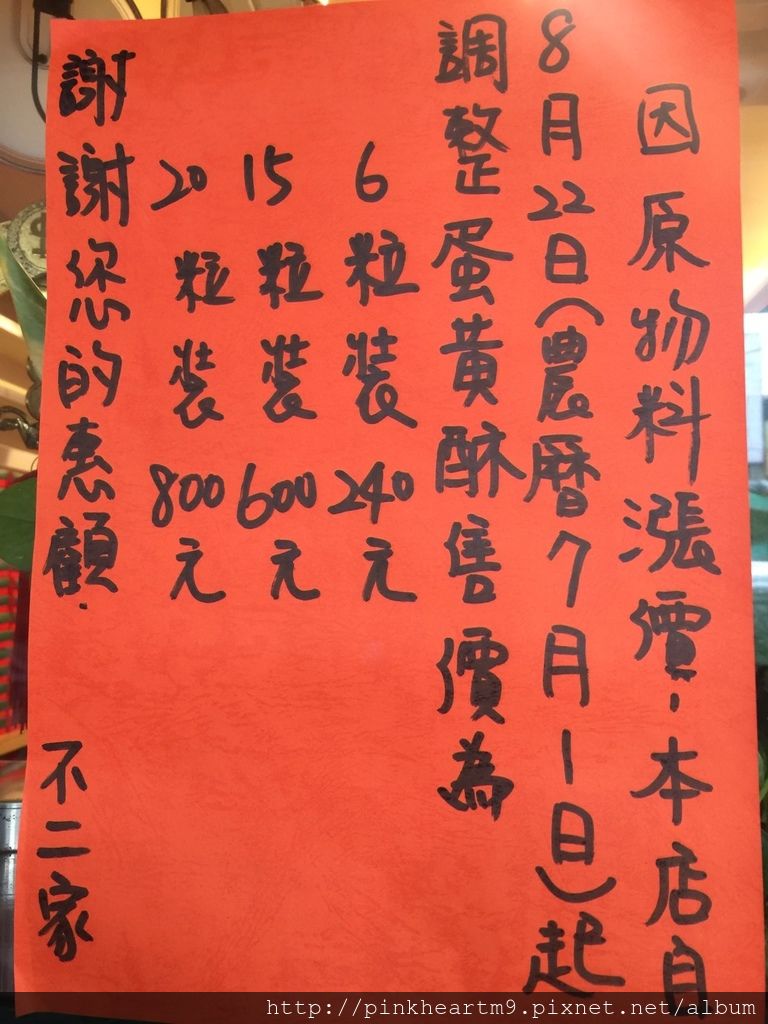 因原物料漲價，本店自
8月22日(農曆7月1日)起
調整蛋黃酥售價為
6粒裝240元
15粒裝600元
20粒裝800元
謝謝您的惠顧．
不二家
http://pinkheartm9.pixnet.net/album